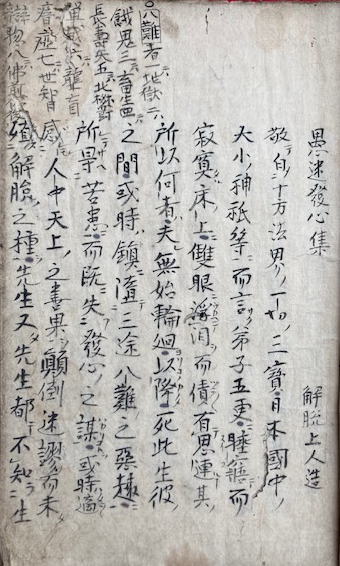 愚迷發心集
解脫上人造
敬白十方法界一切三寶日本國中
大小神祇等而言弟子五更睡寤而
寂寞床上雙眼浮泪而倩有思連其
所以何者夫無始輪迴以降死此生彼
之間或時鎮墮三途八難之惡趣
所㝵苦患而既失發心之謀或時適
感人中天上之善果顛倒迷謬而未
殖解脫之種先生又先生都不知生
八難者一地獄二
餓鬼三畜生四
長壽天五北州
六聾盲
瘖瘂七世智
辯聰八佛前後